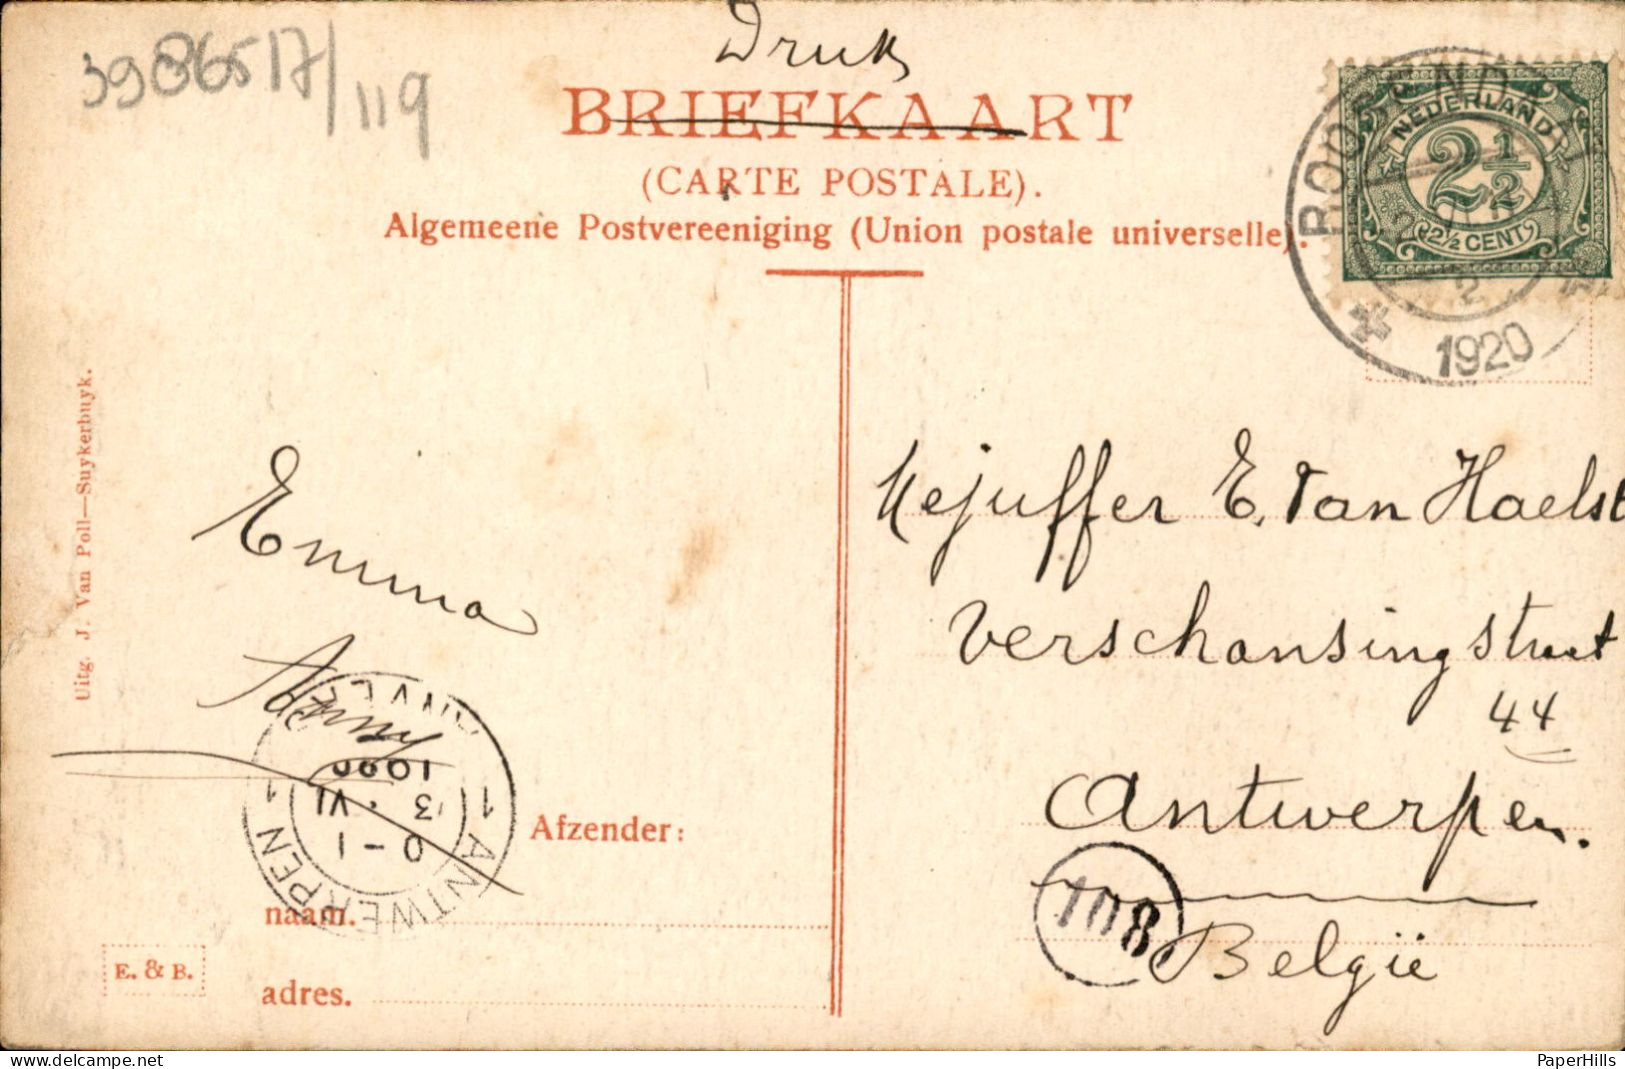 3986517/119
Druk
BRIEFKAART
(CARTE POSTALE).
Algemeene Postvereeniging (Union postale universelle).
NEDERLAND
2 1/2
2½ CENT
2
1920
Uitg. J. Van Poll—Suykerbuyk.
Mejuffer E. Van Haelst
Verschansingstraat
44
Antwerpen.
België
108
Emma
1 ANTWERPEN 1
1920
3 VI
0-1
Afzender:
naam.
adres.
E. & B.
PaperHills